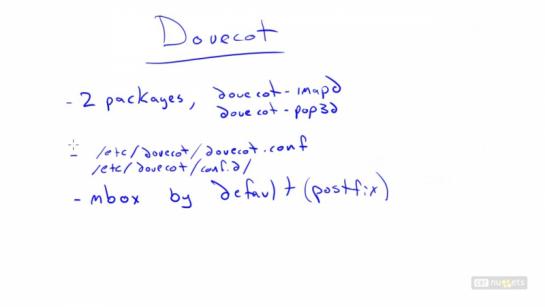 Dovecot
- 2 packages, dovecot-imapd
dovecot-pop3d
- /etc/dovecot/dovecot.conf
/etc/dovecot/conf.d/
- mbox by default (postfix)
CBT nuggets